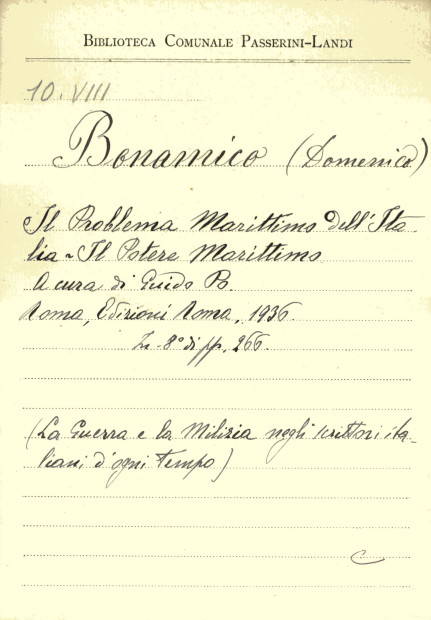 BIBLIOTECA COMUNALE PASSERINI-LANDI
10. VIII
Bonamico (Domenico)
Il Problema Marittimo dell'Ita-
lia - Il Potere Marittimo
A cura di Guido B.
Roma, Edizioni Roma, 1936.
In 8° di pp. 266.
(La Guerra e la Milizia negli scrittori ita-
liani d'ogni tempo)
C